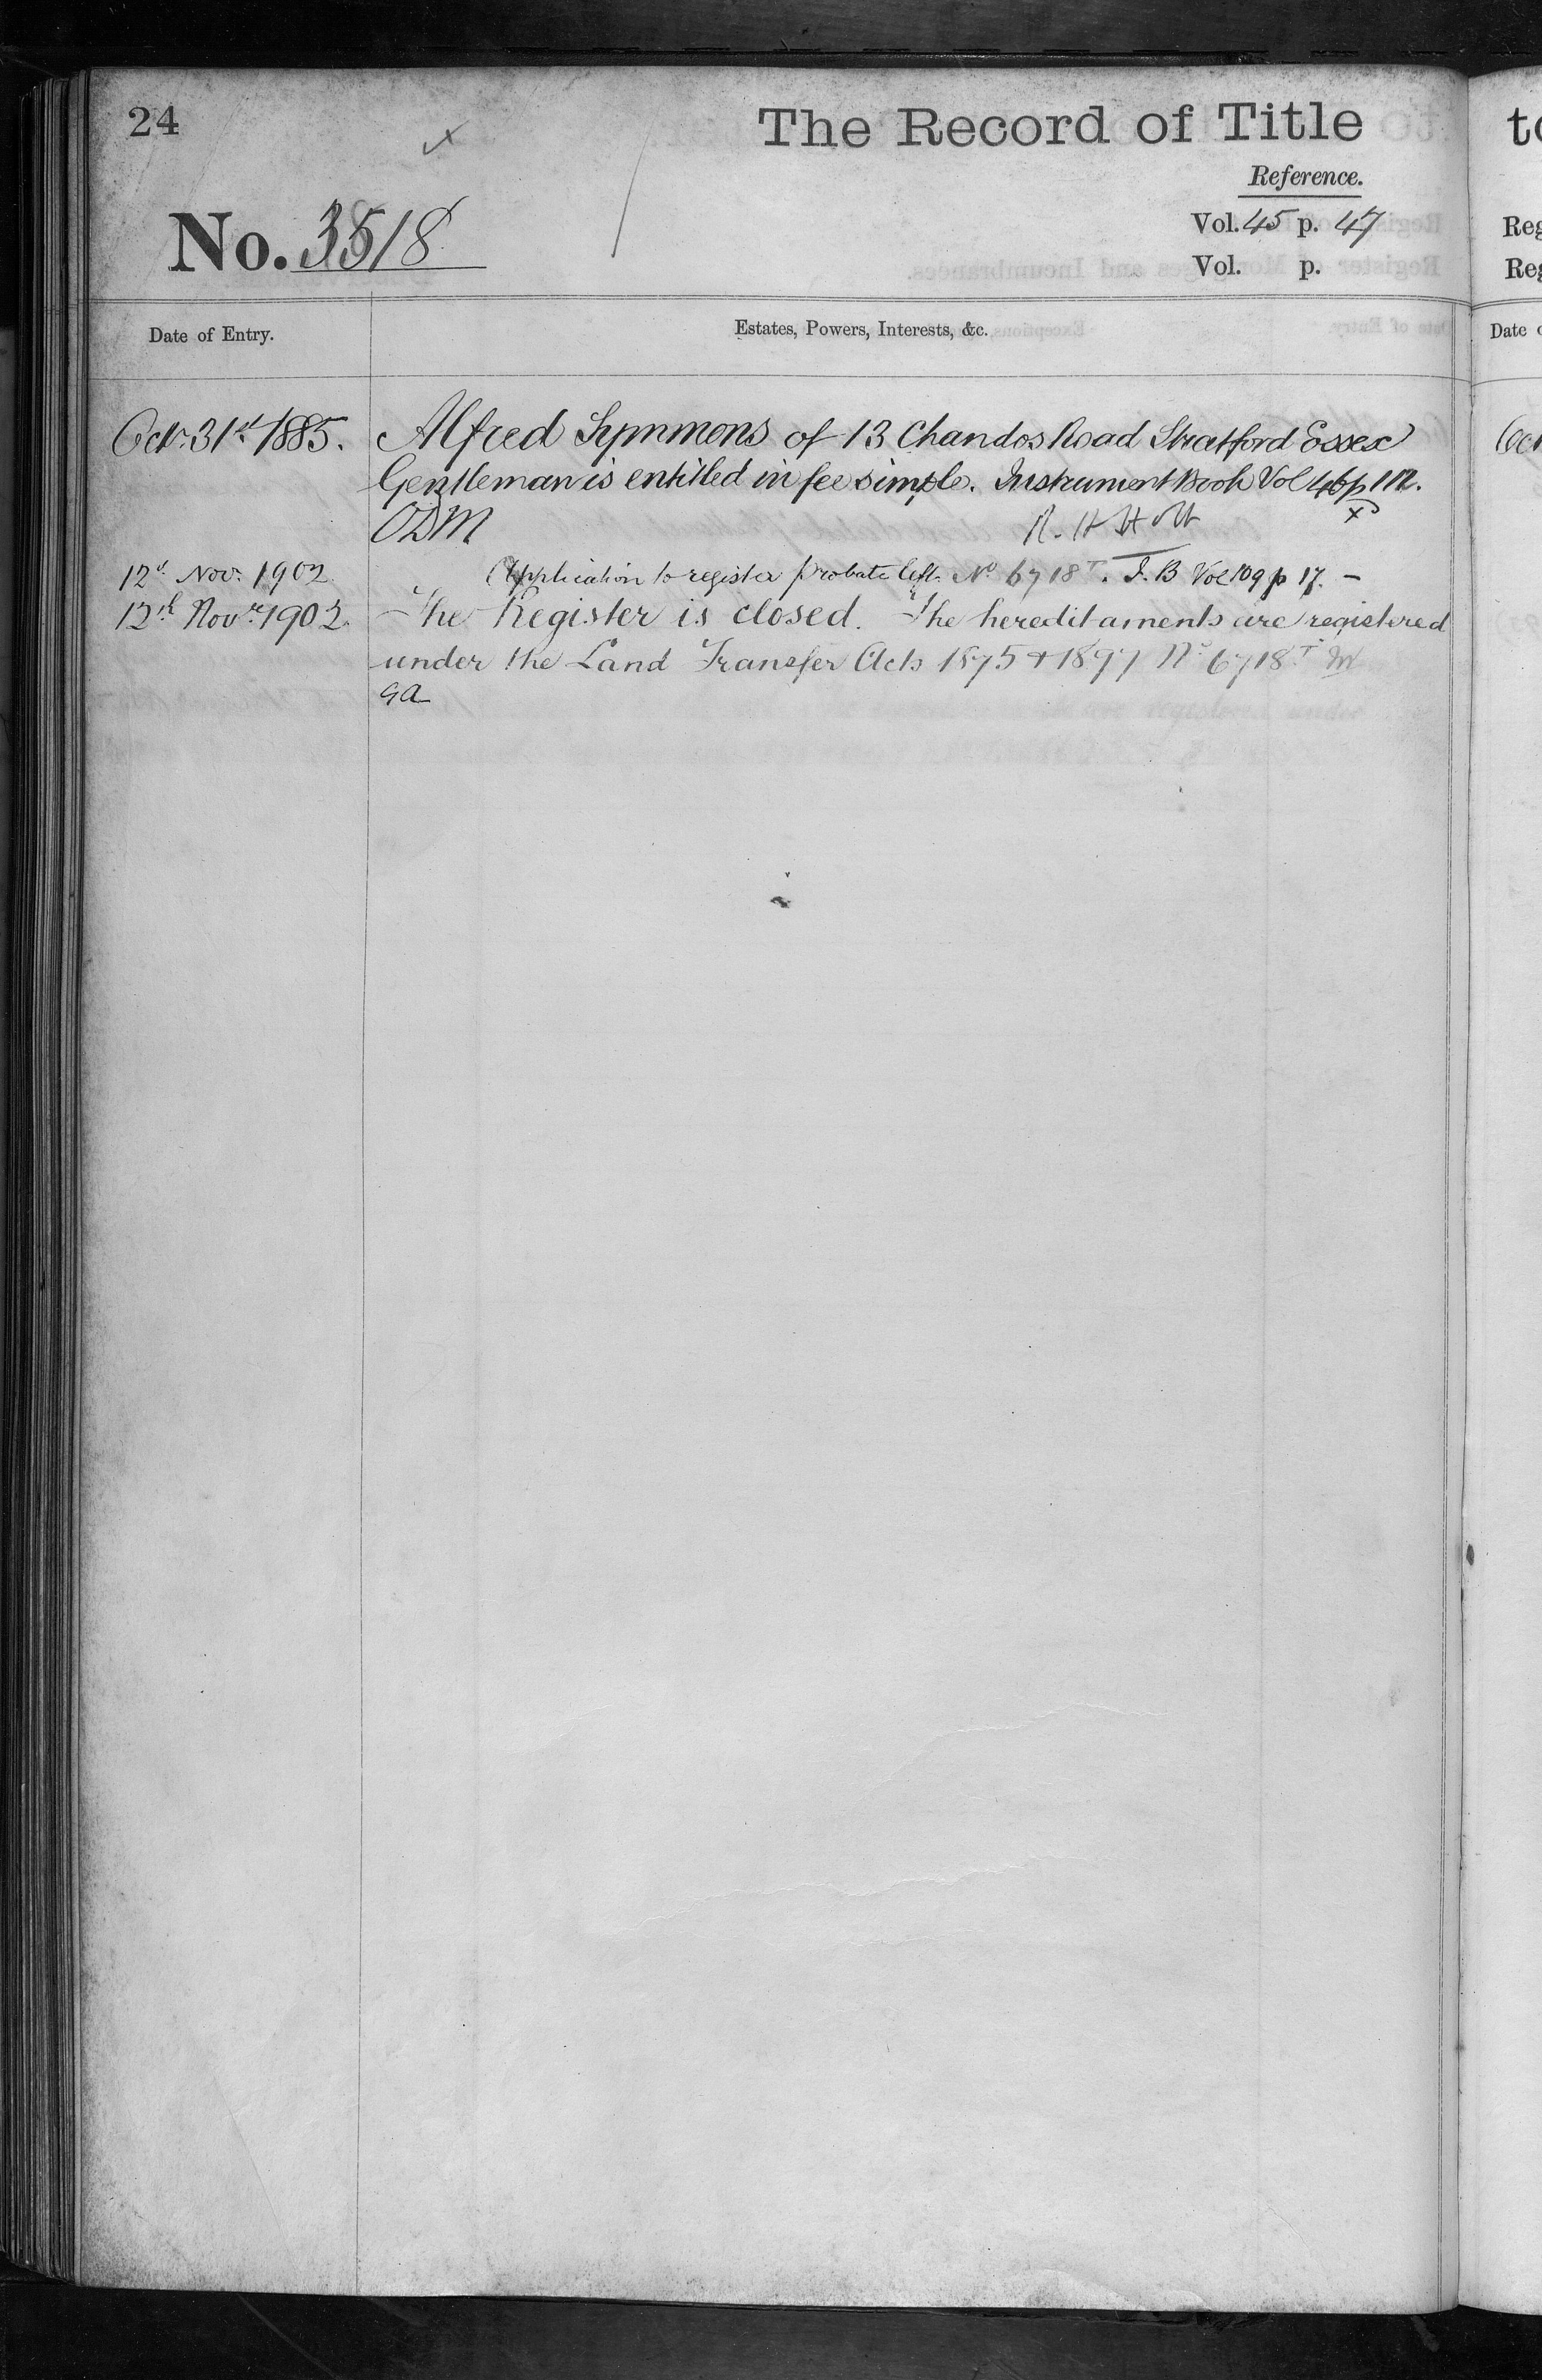 24
The Record of Title
Reference.
No. 3518
Vol. 45 p. 47
Vol. p.
Date of Entry.
Estates, Powers, Interests, &c.
Octr. 31st 1885.
Alfred Symmons of 13 Chandos Road Stratford Essex
Gentleman is entitled in fee simple. Instrument Book Vol 46 p 112.
ODM
R. H. Holt
12th Nov. 1902
Application to register probate left. No 6718T. I. B Vol 109 p 17. –
12th Novr. 1902.
The Register is closed. The hereditaments are registered
under the Land Transfer Acts 1875 & 1897 No 6718T
GA
to
Reg
Reg
Date
Oct